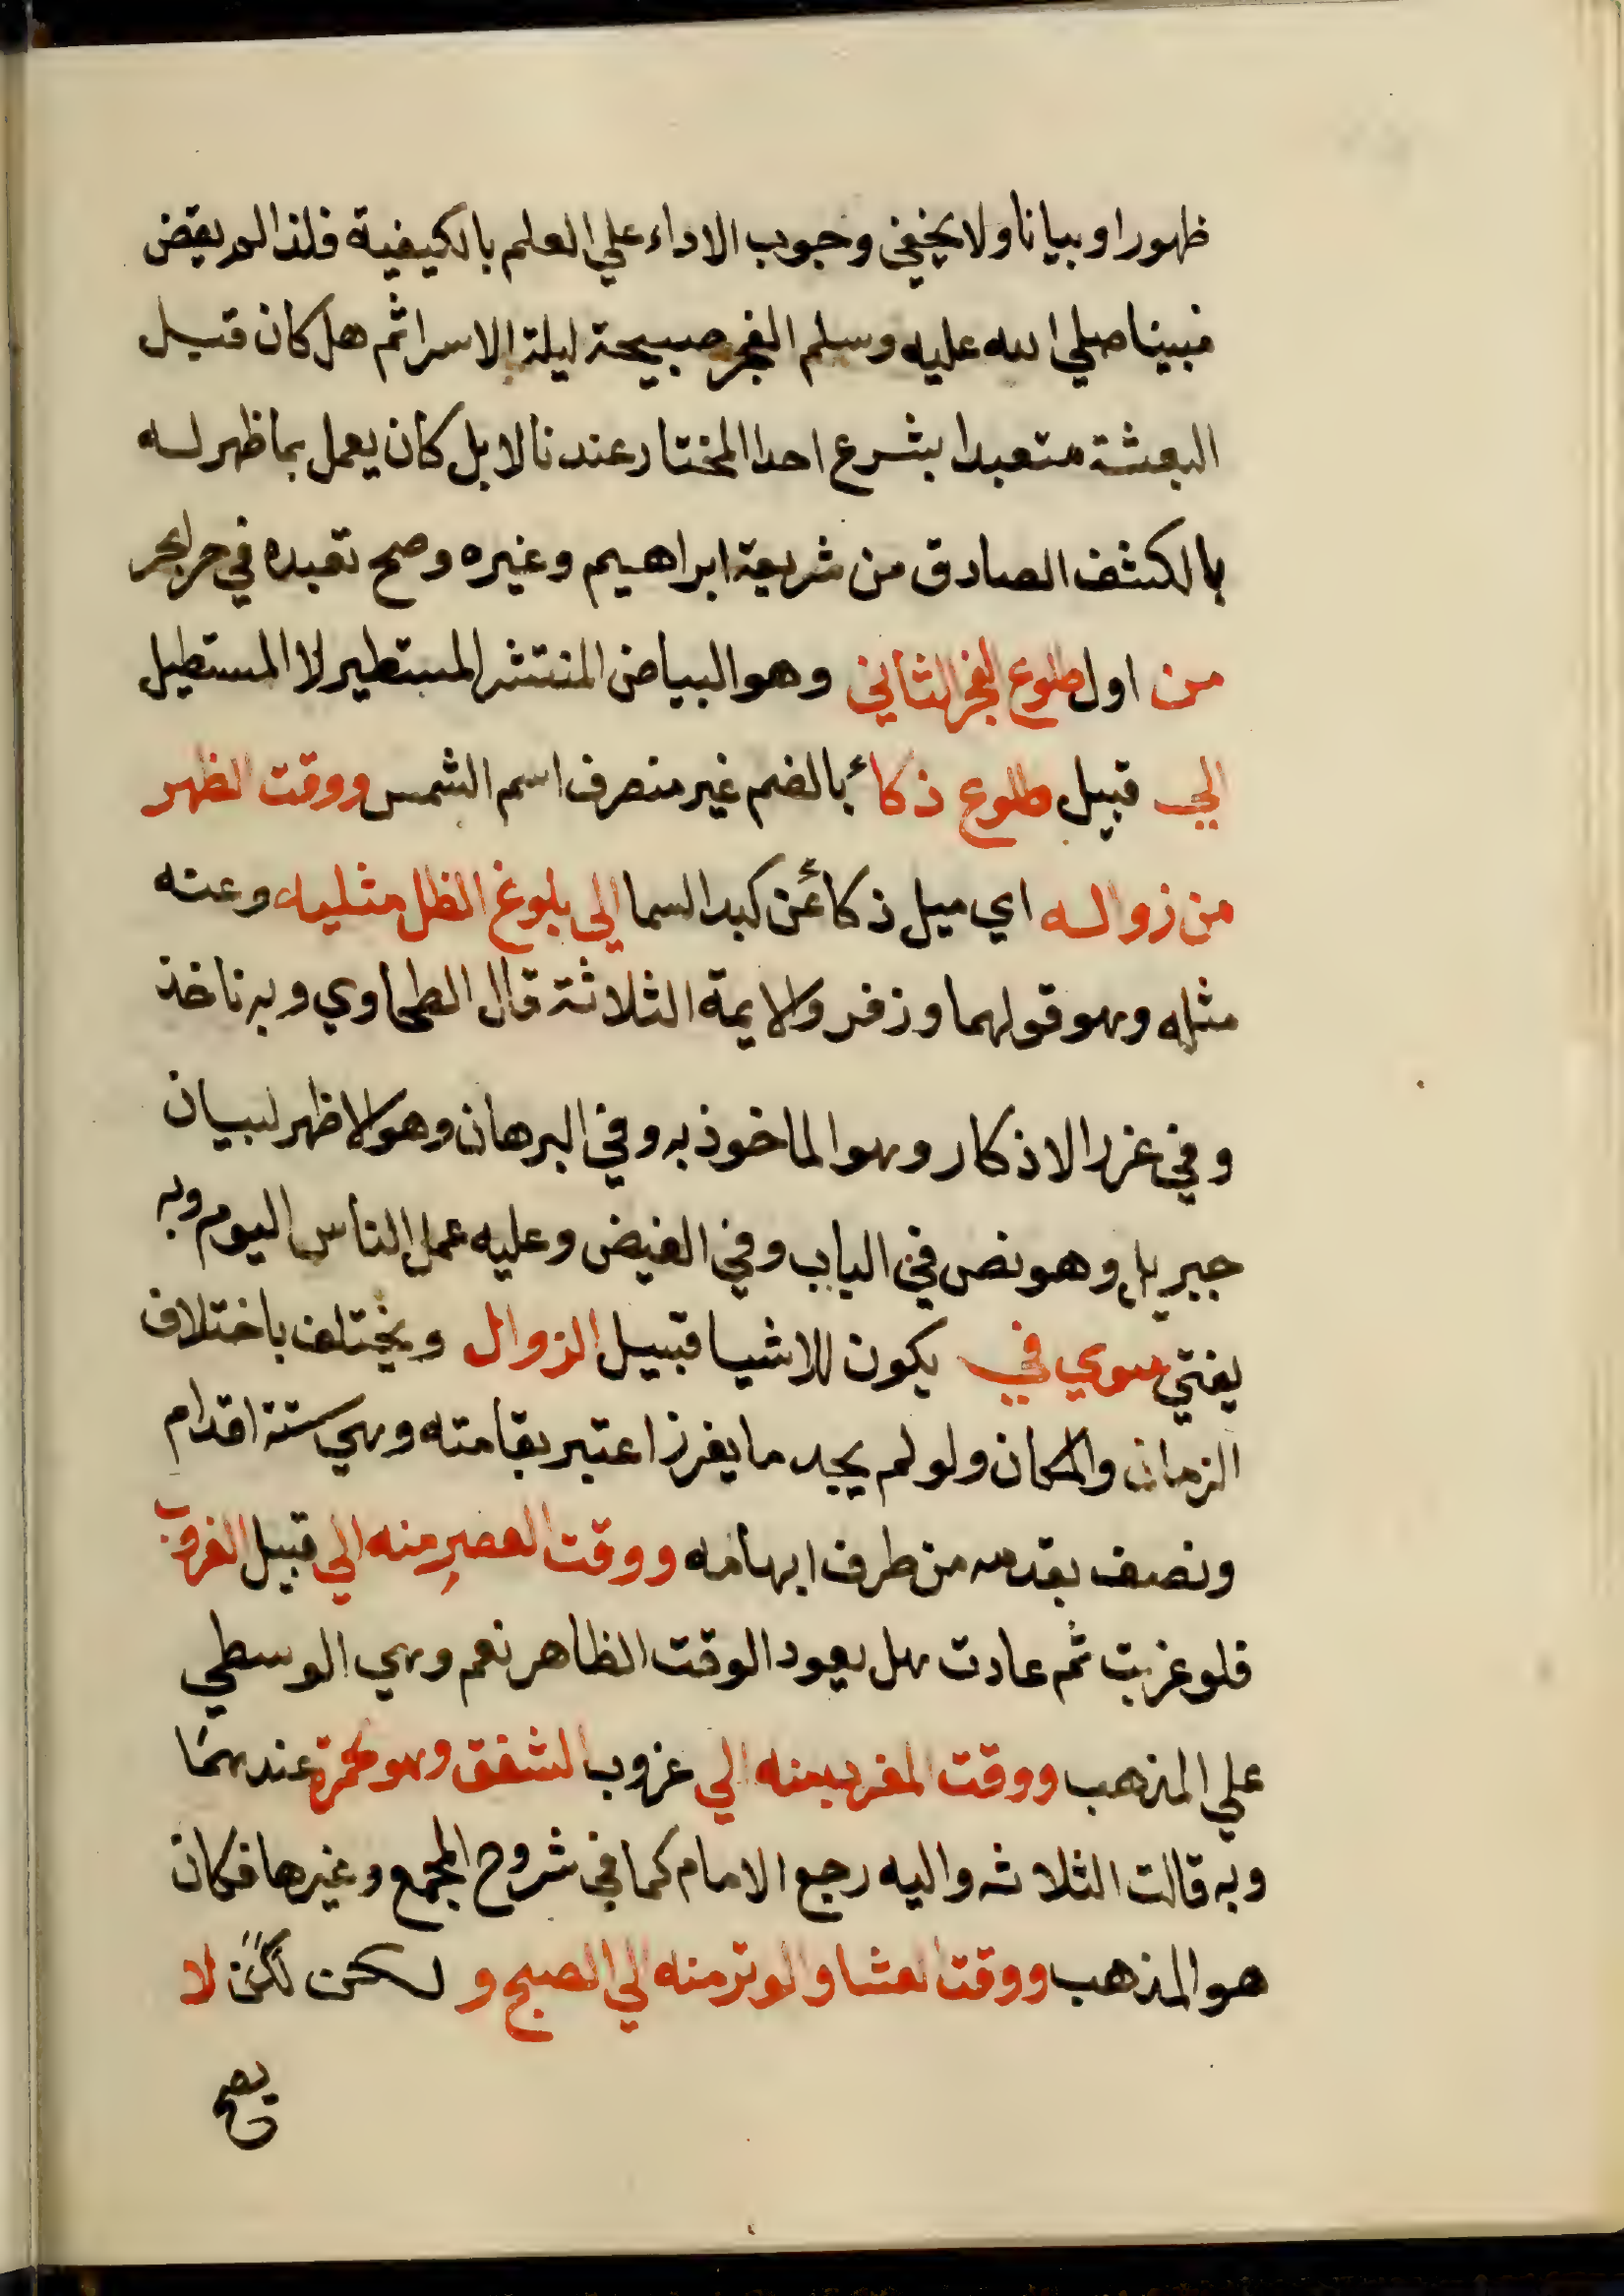 ظهورا وبيانا ولا يخفي وجوب الاداء علي العلم بالكيفية فلذا لم يقض
نبينا صلي الله عليه وسلم الفجر صبيحة ليلة الاسرا ثم هل كان قبل
البعثة متعبدا بشرع احد المختار عندنا لا بل كان يعمل بما ظهر له
بالكشف الصادق من شريعة ابراهيم وغيره وصح تعبده في حرا بحر
من اول طلوع الفجر الثاني وهو البياض المنتشر المستطير لا المستطيل
الي قبيل طلوع ذكاء بالضم غير منصرف اسم الشمس ووقت الظهر
من زواله اي ميل ذكاء عن كبد السما الي بلوغ الظل مثليه وعنه
مثله وهو قولهما وزفر والايمة الثلاثة قال الطحاوي وبه ناخذ
وفي غرر الاذكار وهو الماخوذ به وفي البرهان وهو الاظهر لبيان
جبريل وهو نص في الباب وفي الفيض وعليه عمل الناس اليوم وبه
يفتي سوي في يكون للاشيا قبيل الزوال ويختلف باختلاف
الزمان والمكان ولو لم يجد ما يغرز اعتبر بقامته وهي ستة اقدام
ونصف بقدمه من طرف ابهامه ووقت العصر منه الي قبيل الغروب
فلو غربت ثم عادت هل يعود الوقت الظاهر نعم وهي الوسطي
علي المذهب ووقت المغرب منه الي غروب الشفق وهو الحمرة عندهما
وبه قالت الثلاثه واليه رجع الامام كما في شروح المجمع وغيرها فكان
هو المذهب ووقت العشا والوتر منه الي الصبح و لكن لا
يصح